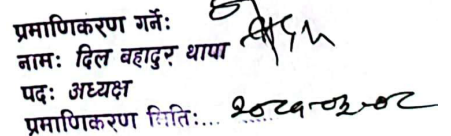 प्रमाणिकरण गर्नेः
नामः दिल बहादुर थापा
पदः अध्यक्ष
प्रमाणिकरण मितिः...